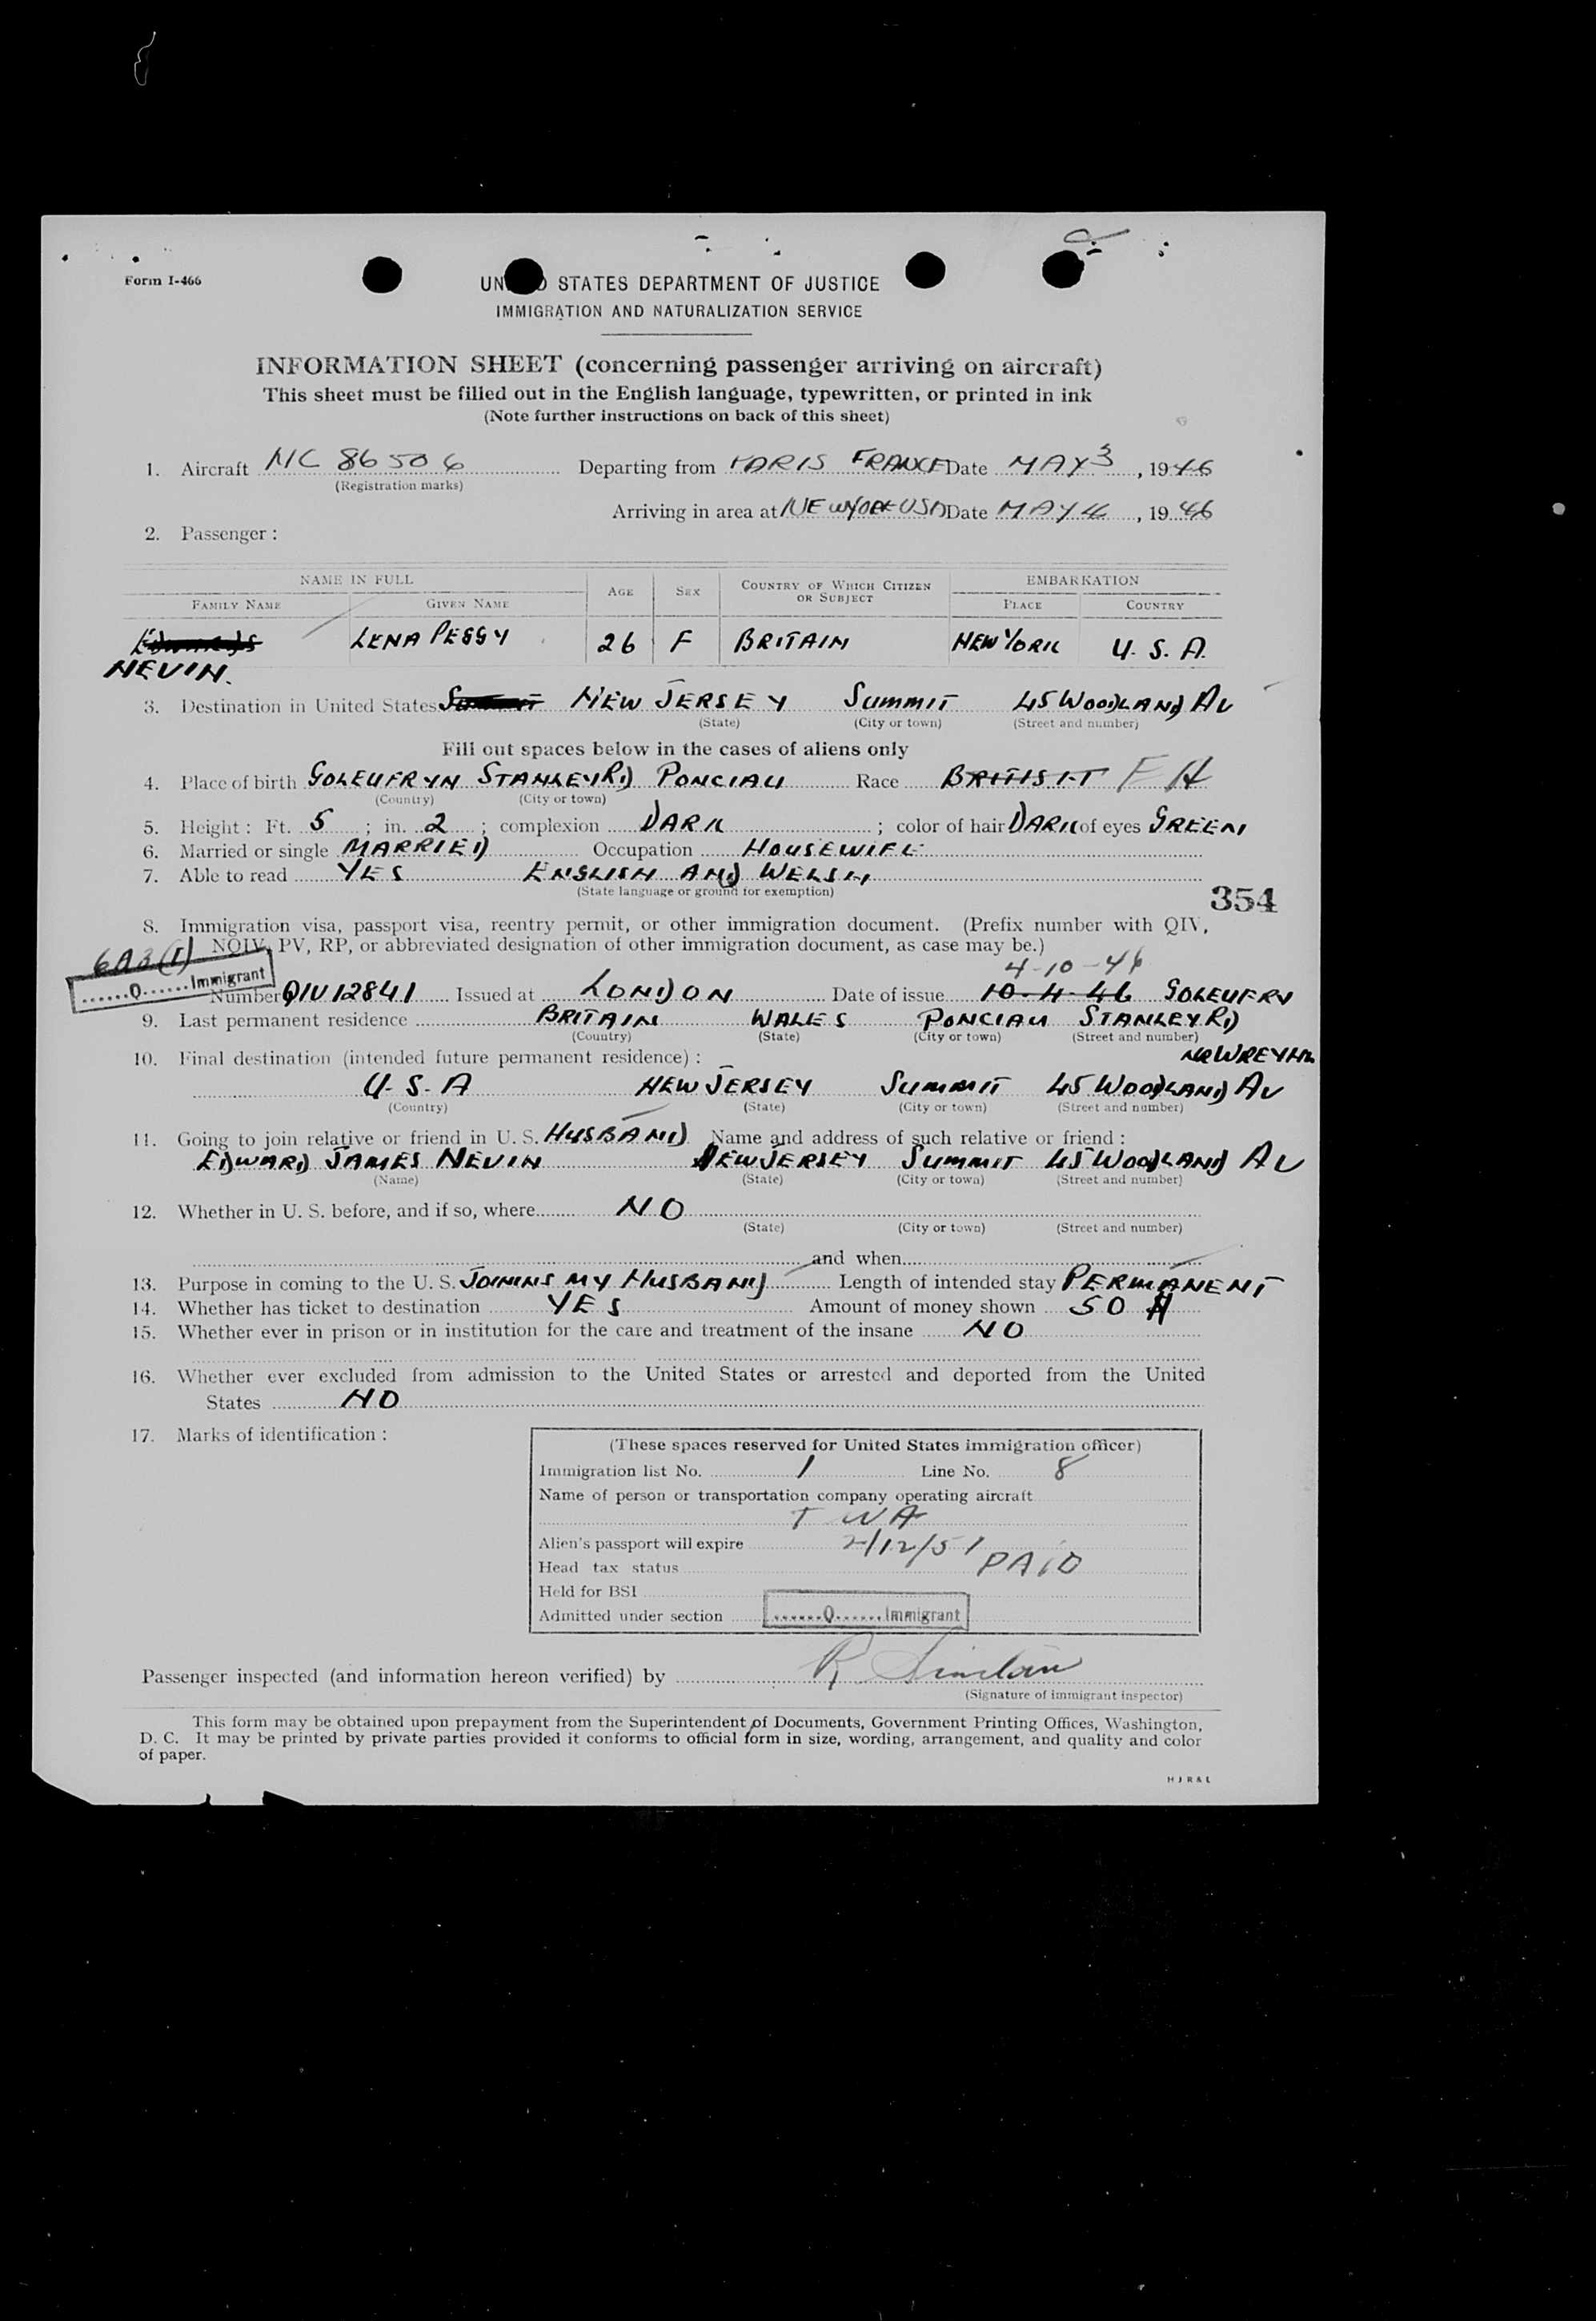 Form I-466
STATES DEPARTMENT OF JUSTICE
IMMIGRATION AND NATURALIZATION SERVICE
INFORMATION SHEET (concerning passenger arriving on aircraft)
This sheet must be filled out in the English language, typewritten, or printed in ink
(Note further instructions on back of this sheet)
1. Aircraft NC 86506 Departing from PARIS FRANCE Date MAY 3, 1946
(Registration marks)
Arriving in area at NEW YORK USA Date MAY 4, 1946
2. Passenger :
NAME IN FULL AGE SEX COUNTRY OF WHICH CITIZEN OR SUBJECT EMBARKATION
FAMILY NAME GIVEN NAME PLACE COUNTRY
EDWARDS LENA PEGGY 26 F BRITAIN NEW YORK U. S. A.
NEVIN.
3. Destination in United States SUMMIT NEW JERSEY SUMMIT 45 WOODLAND AV
(State) (City or town) (Street and number)
Fill out spaces below in the cases of aliens only
4. Place of birth GOLEUFRYN STANLEY RD PONCIAU Race BRITISH
(Country) (City or town)
5. Height : Ft. 5 ; in. 2 ; complexion DARK ; color of hair DARK of eyes GREEN
6. Married or single MARRIED Occupation HOUSEWIFE
7. Able to read YES ENGLISH AND WELSH
(State language or ground for exemption)
354
8. Immigration visa, passport visa, reentry permit, or other immigration document. (Prefix number with QIV,
NQIV, PV, RP, or abbreviated designation of other immigration document, as case may be.)
4-10-46
......Q......Immigrant
Number QIV 12841 Issued at LONDON Date of issue 10-4-46 GOLEUFRY
9. Last permanent residence BRITAIN WALES PONCIAU STANLEY RD
(Country) (State) (City or town) (Street and number)
10. Final destination (intended future permanent residence) :
U. S. A NEW JERSEY SUMMIT 45 WOODLAND AV
(Country) (State) (City or town) (Street and number)
11. Going to join relative or friend in U. S. HUSBAND Name and address of such relative or friend :
EDWARD JAMES NEVIN NEW JERSEY SUMMIT 45 WOODLAND AV
(Name) (State) (City or town) (Street and number)
12. Whether in U. S. before, and if so, where NO
(State) (City or town) (Street and number)
and when
13. Purpose in coming to the U. S. JOINING MY HUSBAND Length of intended stay PERMANENT
14. Whether has ticket to destination YES Amount of money shown 50
15. Whether ever in prison or in institution for the care and treatment of the insane NO
16. Whether ever excluded from admission to the United States or arrested and deported from the United
States NO
17. Marks of identification :
(These spaces reserved for United States immigration officer)
Immigration list No. 1 Line No. 8
Name of person or transportation company operating aircraft
T W A
Alien's passport will expire 2/12/51
Head tax status PAID
Held for BSI
Admitted under section ......Q......Immigrant
Passenger inspected (and information hereon verified) by R Sinclair
(Signature of immigrant inspector)
This form may be obtained upon prepayment from the Superintendent of Documents, Government Printing Offices, Washington,
D. C. It may be printed by private parties provided it conforms to official form in size, wording, arrangement, and quality and color
of paper.
H J R & L